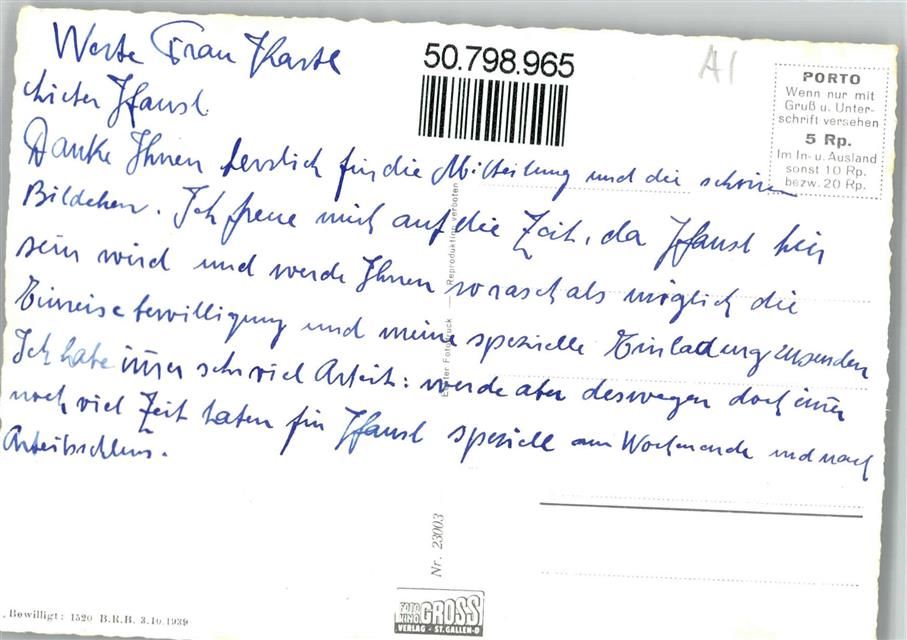 Werte Frau Karte
Lieber Hansl
Danke Ihnen herzlich für die Mitteilung und die schönen
Bildchen. Ich freue mich auf die Zeit, da Hansl hier
sein wird und werde Ihnen so rasch als möglich die
Einreisebewilligung und meine spezielle Einladung zusenden
Ich habe immer sehr viel Arbeit: werde aber deswegen doch immer
noch viel Zeit haben für Hansl speziell am Wochenende und nach
Arbeitsschluss.
50.798.965
A1
PORTO
Wenn nur mit
Gruß u. Unter-
schrift versehen
5 Rp.
Im In- u. Ausland
sonst 10 Rp.
bezw. 20 Rp.
Echter Fotodruck — Reproduktion verboten
Nr. 23003
FOTO KINO GROSS
VERLAG - ST. GALLEN-O
. Bewilligt: 1520 B.R.B. 3.10.1939